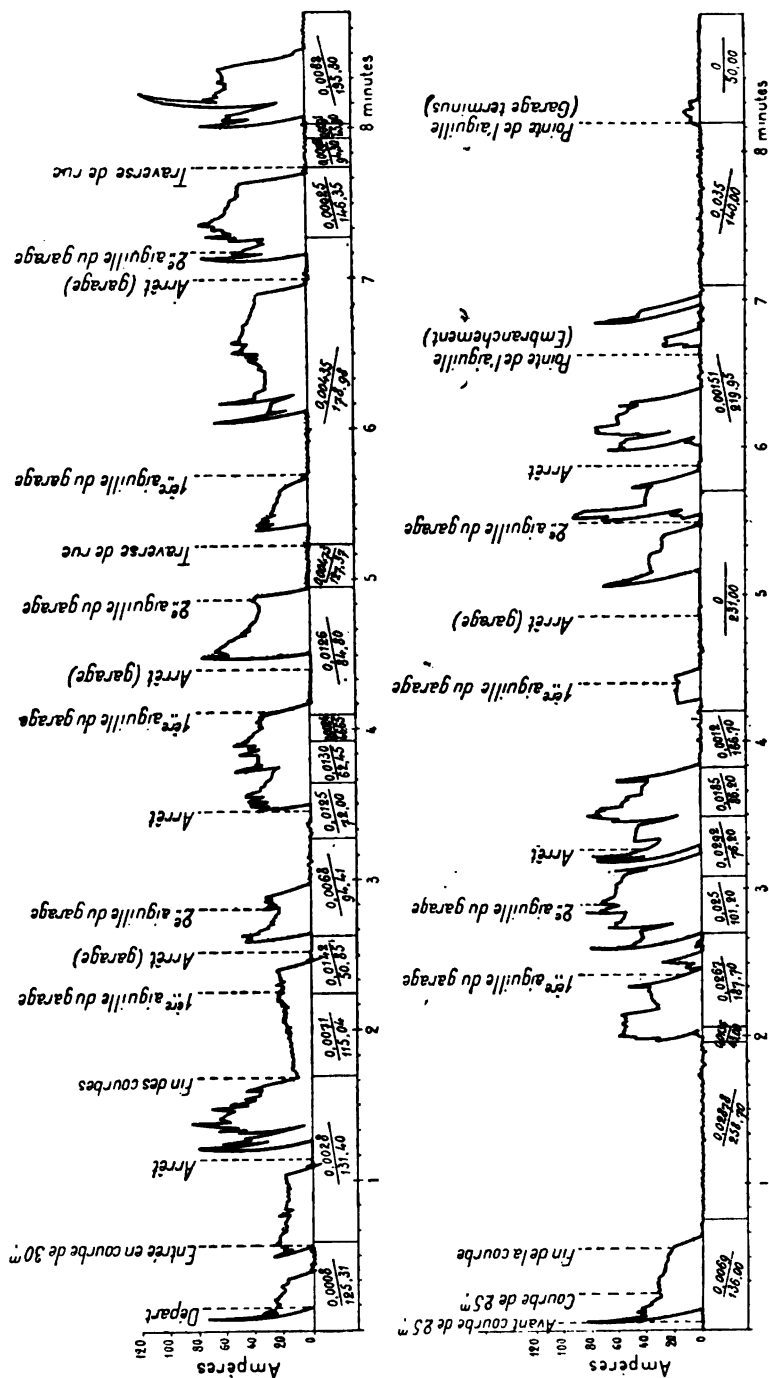 Ampères
120
100
80
60
40
20
0
Départ
Entrée en courbe de 30 m.
Arrêt
Fin des courbes
1ère aiguille du garage
Arrêt (garage)
2e aiguille du garage
Arrêt
1ère aiguille du garage
Arrêt (garage)
2e aiguille du garage
Traverse de rue
1ère aiguille du garage
Arrêt (garage)
2e aiguille du garage
Traverse de rue
0,0008
125,31
0,0028
131,40
0,0071
115,04
0,0142
50,85
0,0068
94,41
0,0125
72,00
0,0130
62,45
0,0126
84,80
0,00475
127,37
0,00435
178,98
0,00985
146,35
0,0083
193,80
1
2
3
4
5
6
7
8 minutes
Ampères
120
100
80
60
40
20
0
Avant courbe de 25 m.
Courbe de 25 m.
Fin de la courbe
1ère aiguille du garage
2e aiguille du garage
Arrêt
1ère aiguille du garage
Arrêt (garage)
2e aiguille du garage
Arrêt
Pointe de l'aiguille
(Embranchement)
Pointe de l'aiguille
(Garage terminus)
0,0069
136,00
0,02878
258,70
0,0267
187,70
0,025
101,20
0,0292
76,20
0,0185
86,20
0,0012
166,70
0
231,00
0,00151
219,95
0,035
140,00
0
50,00
1
2
3
4
5
6
7
8 minutes